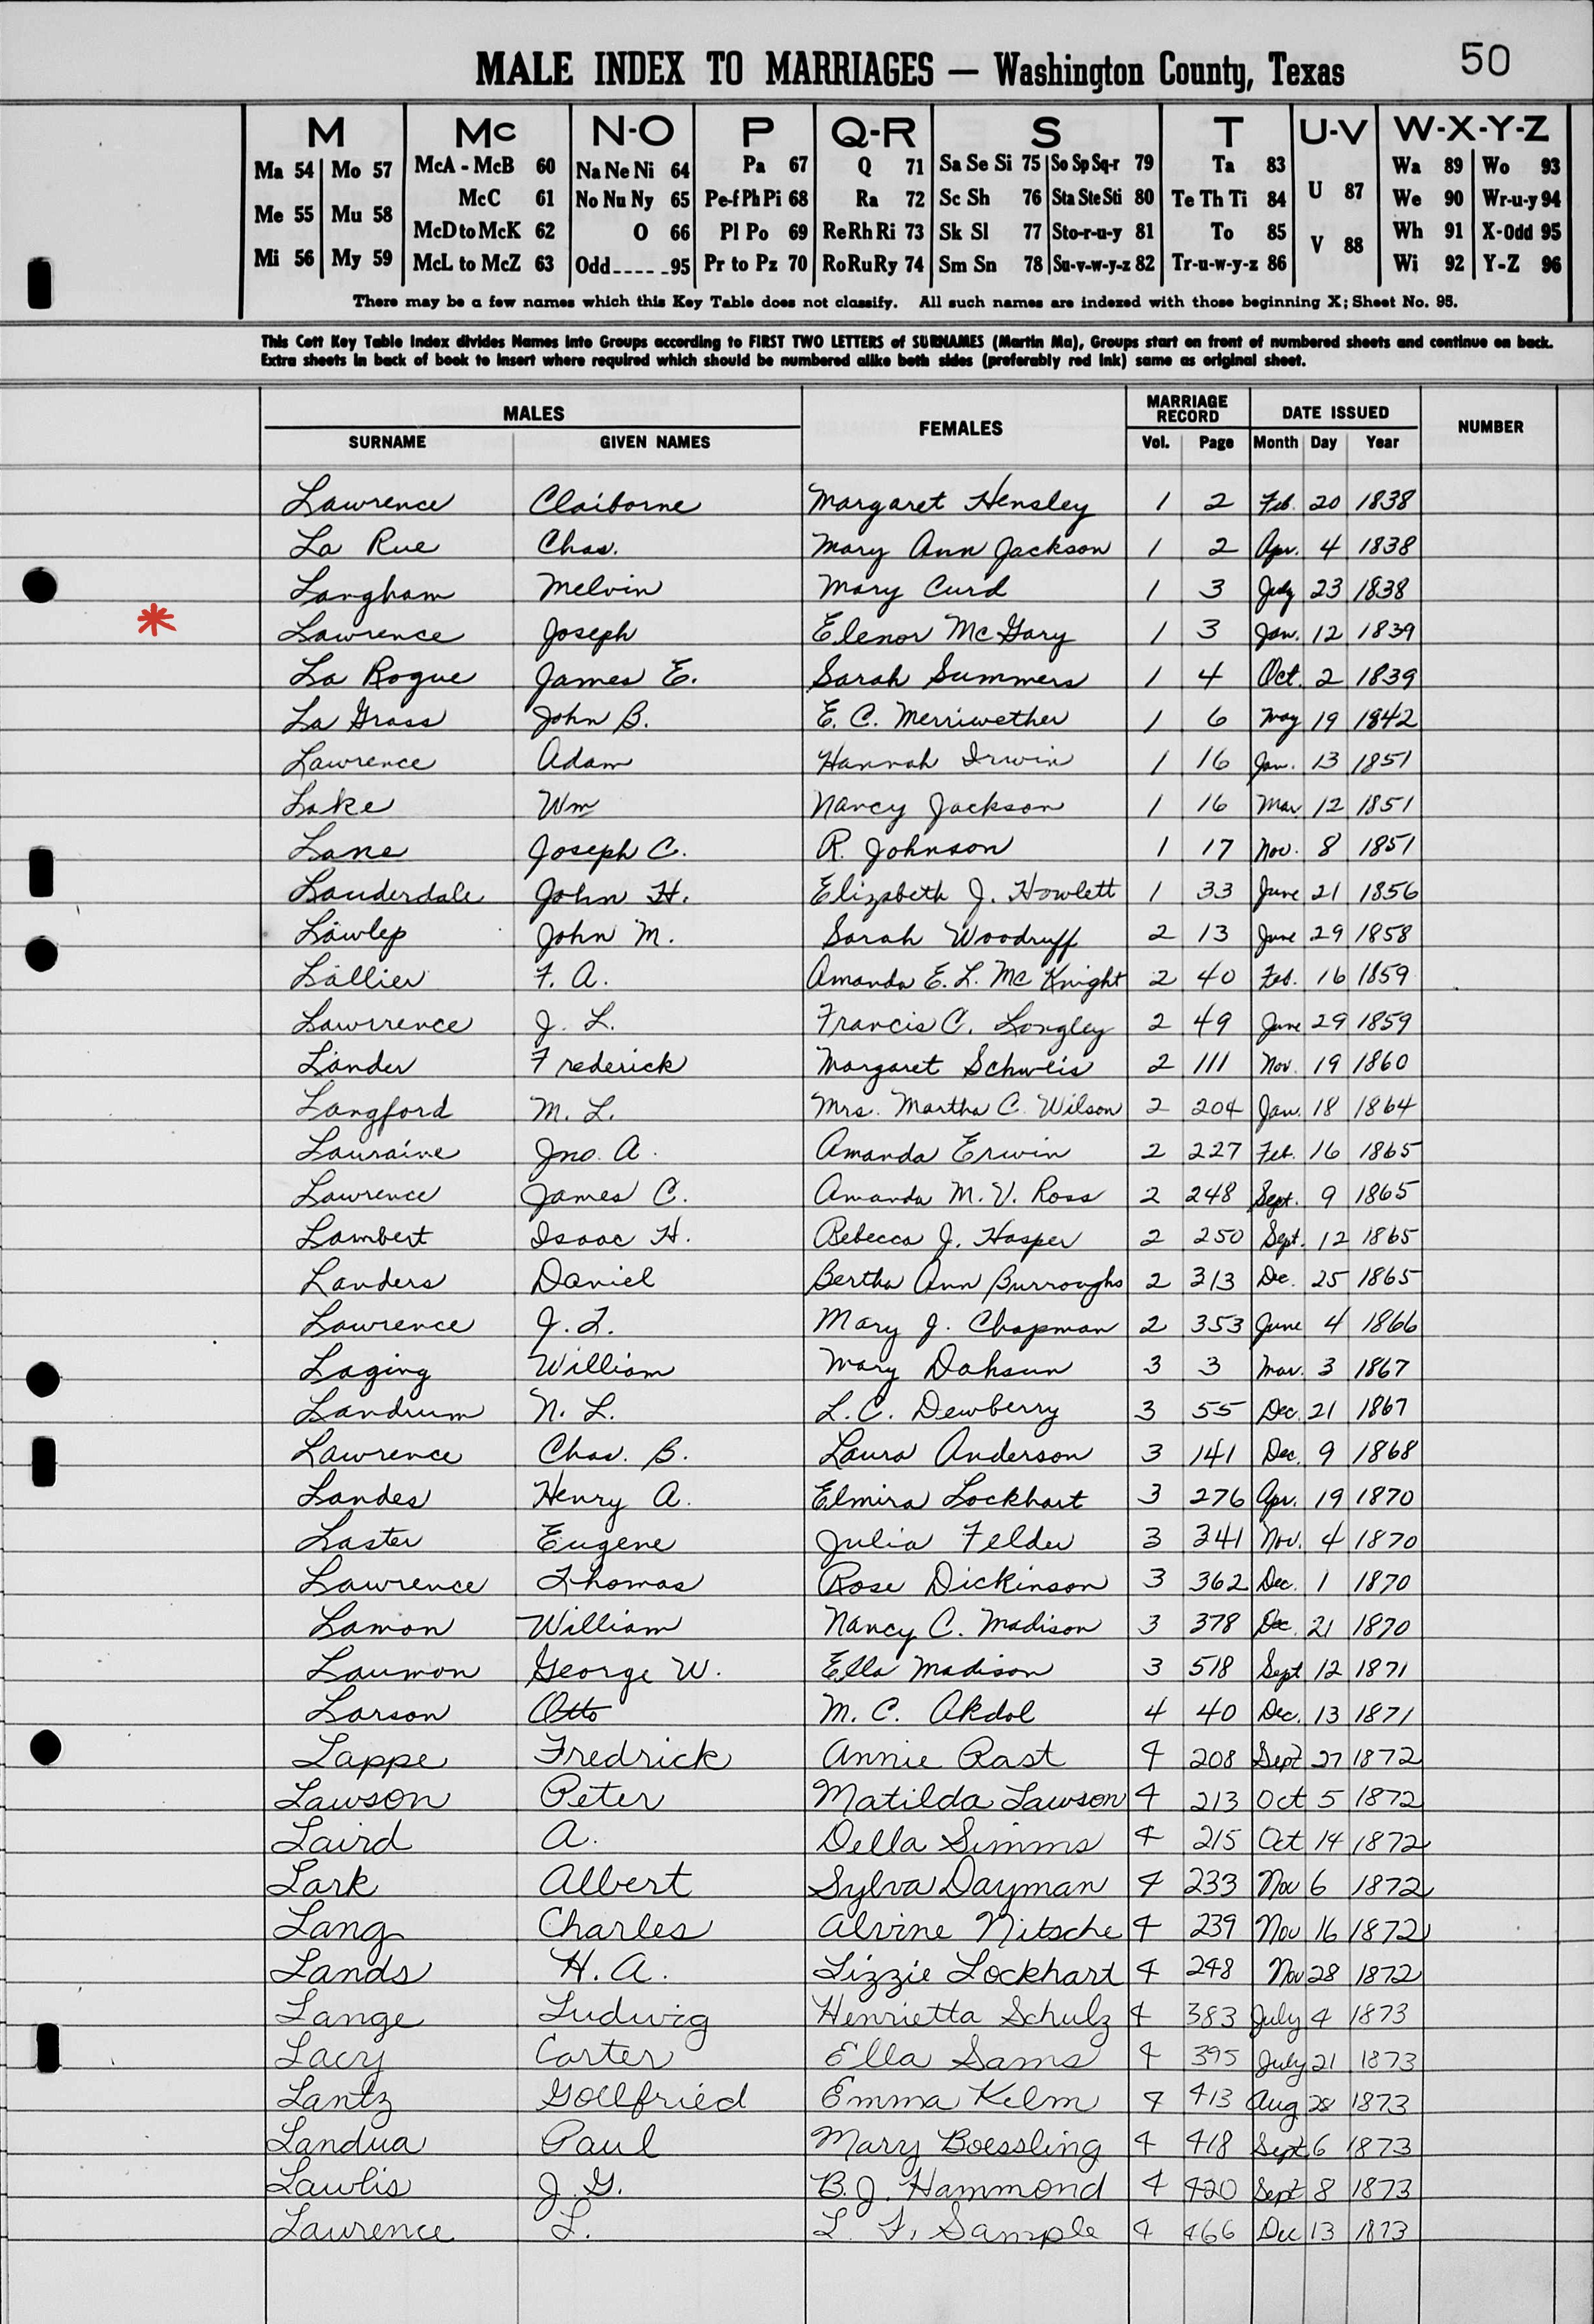 MALE INDEX TO MARRIAGES — Washington County, Texas 50
M Mc N-O P Q-R S T U-V W-X-Y-Z
Ma 54 Mo 57 McA - McB 60 Na Ne Ni 64 Pa 67 Q 71 Sa Se Si 75 So Sp Sq-r 79 Ta 83 U 87 Wa 89 Wo 93
Me 55 Mu 58 McC 61 No Nu Ny 65 Pe-f Ph Pi 68 Ra 72 Sc Sh 76 Sta Ste Sti 80 Te Th Ti 84 V 88 We 90 Wr-u-y 94
Mi 56 My 59 McD to McK 62 O 66 Pl Po 69 Re Rh Ri 73 Sk Sl 77 Sto-r-u-y 81 To 85 Wh 91 X-Odd 95
McL to McZ 63 Odd_____95 Pr to Pz 70 Ro Ru Ry 74 Sm Sn 78 Su-v-w-y-z 82 Tr-u-w-y-z 86 Wi 92 Y-Z 96
There may be a few names which this Key Table does not classify. All such names are indexed with those beginning X; Sheet No. 95.
This Cott Key Table Index divides Names into Groups according to FIRST TWO LETTERS of SURNAMES (Martin Ma), Groups start on front of numbered sheets and continue on back.
Extra sheets in back of book to insert where required which should be numbered alike both sides (preferably red ink) same as original sheet.
MALES FEMALES MARRIAGE RECORD DATE ISSUED NUMBER
SURNAME GIVEN NAMES Vol. Page Month Day Year
Lawrence Claiborne Margaret Hensley 1 2 Feb. 20 1838
La Rue Chas. Mary Ann Jackson 1 2 Apr. 4 1838
Langham Melvin Mary Curd 1 3 July 23 1838
* Lawrence Joseph Elenor McGary 1 3 Jan. 12 1839
La Rogue James E. Sarah Summers 1 4 Oct. 2 1839
La Grass John B. E. C. Merriwether 1 6 May 19 1842
Lawrence Adam Hannah Irwin 1 16 Jan. 13 1851
Lake Wm Nancy Jackson 1 16 Mar. 12 1851
Lane Joseph C. R. Johnson 1 17 Nov. 8 1851
Lauderdale John H. Elizabeth J. Howlett 1 33 June 21 1856
Lawlep John M. Sarah Woodruff 2 13 June 29 1858
Lallier F. A. Amanda E. L. McKnight 2 40 Feb. 16 1859
Lawrrence J. L. Francis C. Longley 2 49 June 29 1859
Lander Frederick Margaret Schweis 2 111 Nov. 19 1860
Langford M. L. Mrs. Martha C. Wilson 2 204 Jan. 18 1864
Lauraine Jno. A. Amanda Erwin 2 227 Feb. 16 1865
Lawrence James C. Amanda M. V. Ross 2 248 Sept. 9 1865
Lambert Isaac H. Rebecca J. Hasper 2 250 Sept. 12 1865
Landers Daniel Bertha Ann Burroughs 2 313 Dec. 25 1865
Lawrence J. T. Mary J. Chapman 2 353 June 4 1866
Laging William Mary Dahsun 3 3 Mar. 3 1867
Landrum N. L. L. C. Dewberry 3 55 Dec. 21 1867
Lawrence Chas. B. Laura Anderson 3 141 Dec. 9 1868
Landes Henry A. Elmira Lockhart 3 276 Apr. 19 1870
Laster Eugene Julia Felder 3 341 Nov. 4 1870
Lawrence Thomas Rose Dickinson 3 362 Dec. 1 1870
Lamon William Nancy C. Madison 3 378 Dec. 21 1870
Laumon George W. Ella Madison 3 518 Sept 12 1871
Larson Otto M. C. Akdol 4 40 Dec. 13 1871
Lappe Fredrick Annie Rast 4 208 Sept 27 1872
Lawson Peter Matilda Lawson 4 213 Oct 5 1872
Laird A. Della Simms 4 215 Oct 14 1872
Lark Albert Sylva Dayman 4 233 Nov 6 1872
Lang Charles Alvine Nitsche 4 239 Nov 16 1872
Lands H. A. Lizzie Lockhart 4 248 Nov 28 1872
Lange Ludwig Henrietta Schulz 4 383 July 4 1873
Lacy Carter Ella Sams 4 395 July 21 1873
Lantz Gollfried Emma Kelm 4 413 Aug 28 1873
Landua Paul Mary Boessling 4 418 Sept 6 1873
Lawlis J. G. B. J. Hammond 4 420 Sept 8 1873
Laurence L. L. F. Sample 4 466 Dec 13 1873